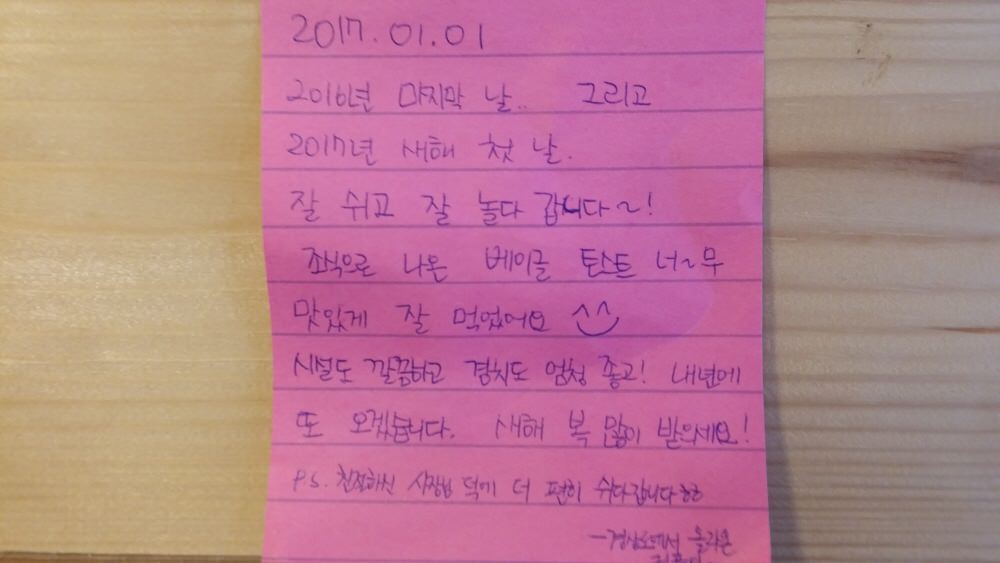 2017.01.01
2016년 마지막 날.. 그리고
2017년 새해 첫 날.
잘 쉬고 잘 놀다 갑니다~!
조식으로 나온 베이글 토스트 너~무
맛있게 잘 먹었어요 ^^
시설도 깔끔하고 경치도 엄청 좋고! 내년에
또 오겠습니다. 새해 복 많이 받으세요!
P.S. 친절하신 사장님 덕에 더 편히 쉬다갑니다ㅎㅎ
-경상도에서 올라온